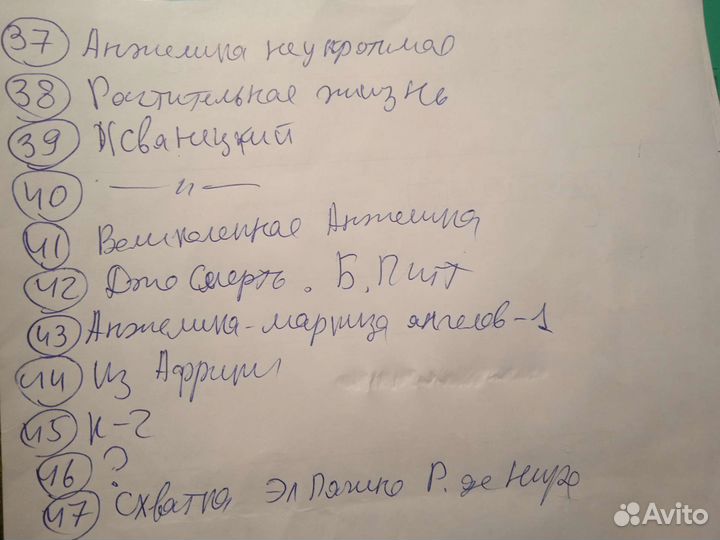 37 Анжелика неукротимая
38 Растительная жизнь
39 Жванецкий
40 —"—
41 Великолепная Анжелика
42 Джо Смерть. Б. Питт
43 Анжелика-маркиза ангелов-1
44 Из Африки
45 К-2
46 ?
47 Схватка Эл Пачино Р. де Ниро
Avito